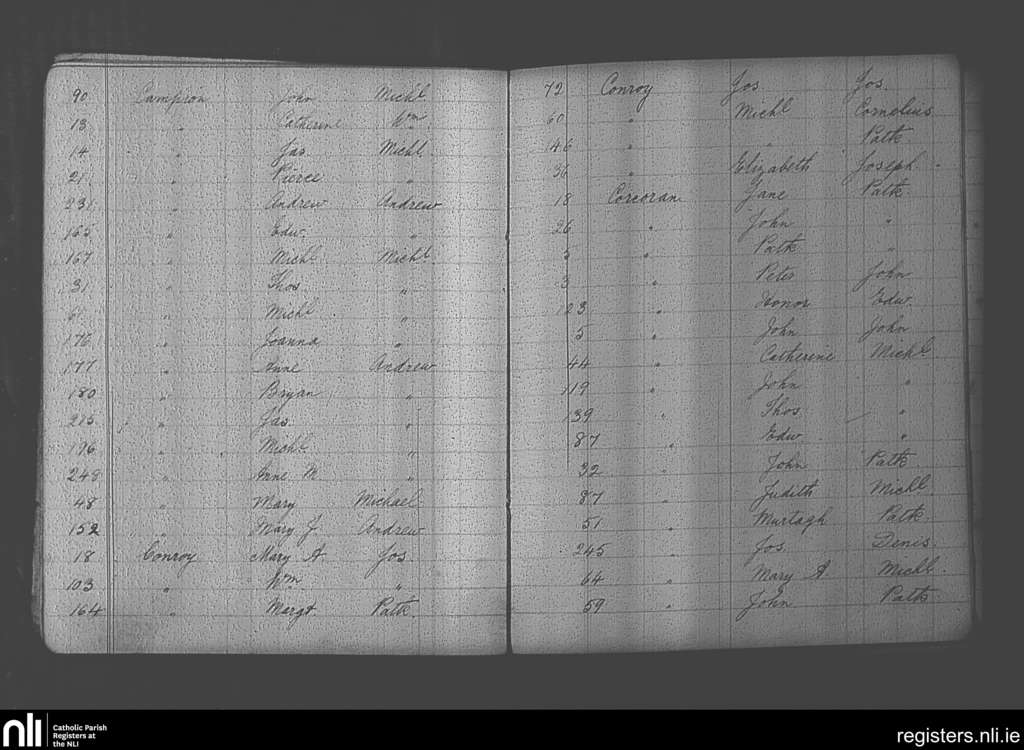 90 Campion John Michl
13 " Catherine Wm
14 " Jas. Michl
21 " Pierce "
231 " Andrew Andrew
165 " Edw. "
167 " Michl Michl
31 " Thos "
61 " Michl "
176 " Joanna "
177 " Anne Andrew
180 " Bryan "
215 " Jas. "
196 " Michl "
248 " Anne M "
48 " Mary Michael
152 " Mary J. Andrew
18 Conroy Mary A Jos.
103 " Wm "
164 " Margt Patk
72 Conroy Jos Jos.
60 " Michl Cornelius
146 " " Patk
36 " Elizabeth Joseph
18 Corcoran Jane Patk
26 " John "
5 " Patk "
3 " Peter John
123 " Honor Edw
5 " John John
44 " Catherine Michl
119 " John "
139 " Thos "
87 " Edw "
32 " John Patk
87 " Judith Michl
51 " Murtagh Patk
245 " Jos. Denis
64 " Mary A. Michl
59 " John Patk
nli Catholic Parish
Registers at
the NLI
registers.nli.ie